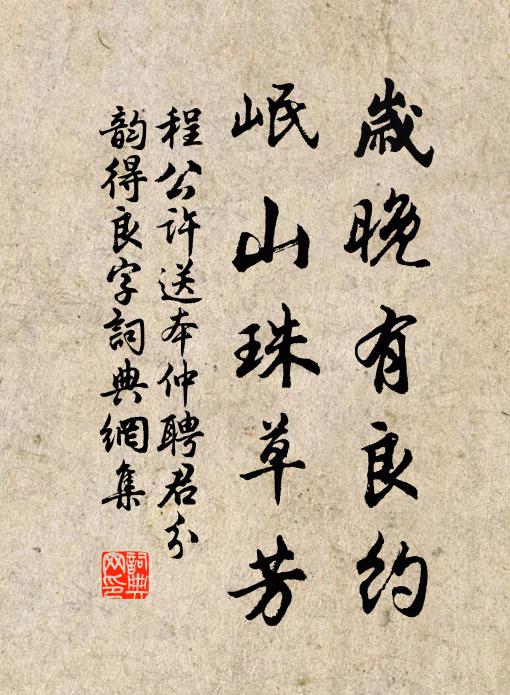 歲晚有良約
岷山珠草芳
程公許送本仲聘君分
韵得良字詞典網集
詞典网印